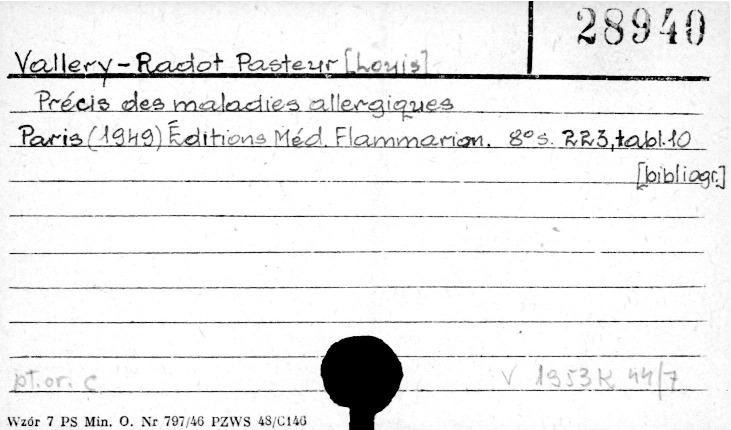 28940
Vallery-Radot Pasteur [Louis]
Précis des maladies allergiques
Paris (1949) Éditions Méd. Flammarion. 8°s. 223, tabl. 10
[bibliogr.]
pt. or. c V 1953 K 44/7
Wzór 7 PS Min. O. Nr 797/46 PZWS 48/C146